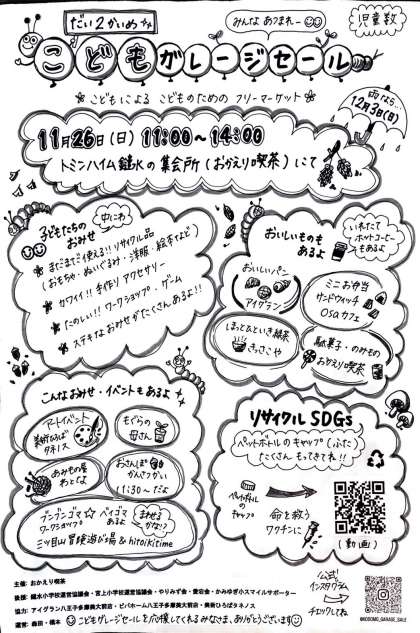 だい2かいめ
みんなあつまれー
児童数
こどもガレージセール
こどもによる こどものための フリーマーケット
雨なら…
12月3日(日)
11月26日(日) 11:00〜14:00
トミンハイム鑓水の集会所(おかえり喫茶)にて
子どもたちの
おみせ
中にわ
まだまだ使える!!リサイクル品
(おもちゃ・ぬいぐるみ・洋服・絵本など)
カワイイ!! 手作りアクセサリー
たのしい!! ワークショップ・ゲーム
ステキなおみせがたくさんあるよ!!
おいしいものも
あるよ
いれたて
ホットコーヒー
もあるよ
おいしいパン
アイグラン
ミニお弁当
サンドウィッチ
Osaカフェ
ほっとひといき緑茶
きっさこや
駄菓子・のみもの
おかえり喫茶
こんなおみせ・イベントもあるよ
アートイベント
美術ひろば
タネノス
もぐらの
母さん
あみもの屋
わとなよ
おさんぽ
かんさつかい
11:30〜だよ
ブンブンゴマ☆
ワークショップ
ベイゴマ
あるよ
まわせる
かな!?
三ツ目山冒険遊び場 & hitoikitime
リサイクル SDGs
ペットボトルのキャップ(ふた)
たくさん もってきてね!!
ペットボトル
のキャップ
命を救う
ワクチンに
(動画)
主催: おかえり喫茶
後援: 鑓水小学校運営協議会・宮上小学校運営協議会・やりみず会・愛宕会・かみゆぎ小スマイルサポーター
協力: アイグラン八王子多摩美大前店・ビバホーム八王子多摩美大前店・美術ひろばタネノス
運営: 森田・橋本
こどもガレージセールを応援してくれるみなさま、ありがとうございます
公式
インスタグラム
チェックしてね
@KODOMO_GARAGE_SALE